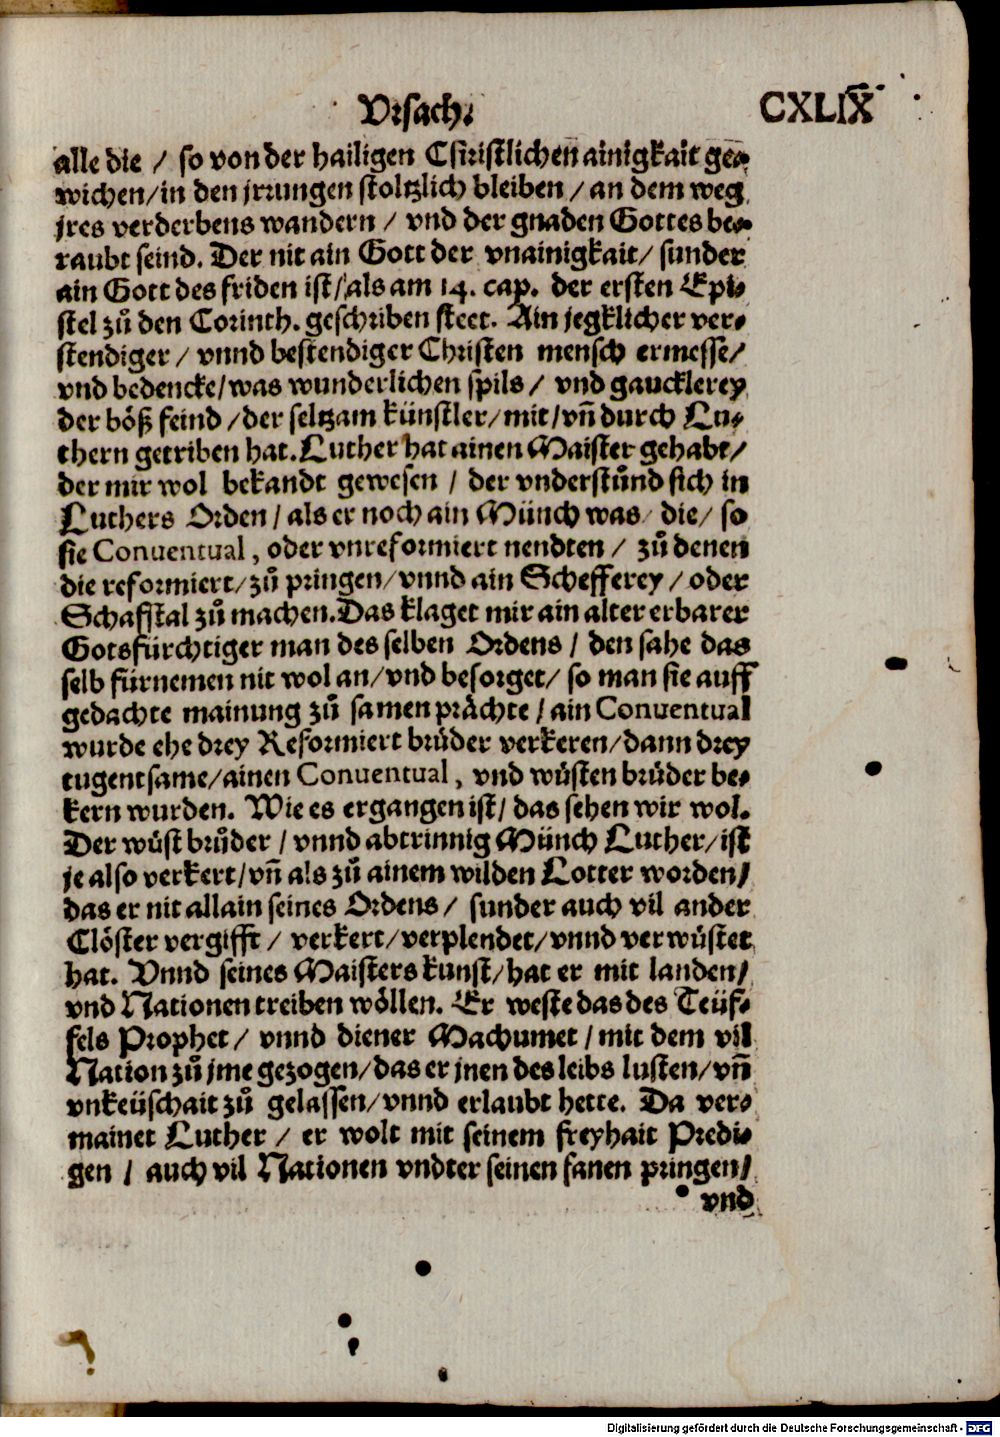 Vrsach. CXLIX
alle die / so von der hailigen Christlichen ainigkait ge-
wichen / in den jrrungen stoltzlich bleiben / an dem weg
jres verderbens wandern / vnd der gnaden Gottes be-
raubt seind. Der nit ain Gott der vnainigkait / sunder
ain Gott des friden ist / als am 14. cap. der ersten Epi-
stel zů den Corinth. geschriben steet. Ain jegklicher ver-
stendiger / vnnd bestendiger Christen mensch ermesse /
vnd bedencke / was wunderlichen spils / vnd gaucklerey
der böß feind / der seltzam künstler / mit / vñ durch Lu-
thern getriben hat. Luther hat ainen Maister gehabt /
der mir wol bekandt gewesen / der vnderstůnd sich in
Luthers Orden / als er noch ain Münch was / die / so
sie Conuentual, oder vnreformiert nendten / zů denen
die reformiert / zů pringen / vnnd ain Schefferey / oder
Schafstal zů machen. Das klaget mir ain alter erbarer
Gotsfürchtiger man des selben Ordens / den sahe das
selb fürnemen nit wol an / vnd besorget / so man sie auff
gedachte mainung zů samen prächte / ain Conuentual
wurde ehe drey Reformiert brüder verkeren / dann drey
tugentsame / ainen Conuentual, vnd wüsten brüder be-
kern wurden. Wie es ergangen ist / das sehen wir wol.
Der wüst brůder / vnnd abtrinnig Münch Luther / ist
je also verkert / vñ als zů ainem wilden Lotter worden /
das er nit allain seines Ordens / sunder auch vil ander
Clöster vergifft / verkert / verplendet / vnnd verwüstet
hat. Vnnd seines Maisters kunst / hat er mit landen /
vnd Nationen treiben wöllen. Er weste das des Teüf-
fels Prophet / vnnd diener Machumet / mit dem vil
Nation zů jme gezogen / das er jnen des leibs lusten / vñ
vnkeüschait zů gelassen / vnnd erlaubt hette. Da ver-
mainet Luther / er wolt mit seinem freyhait Predi-
gen / auch vil Nationen vndter seinen fanen pringen /
vnd
Digitalisierung gefördert durch die Deutsche Forschungsgemeinschaft - DFG